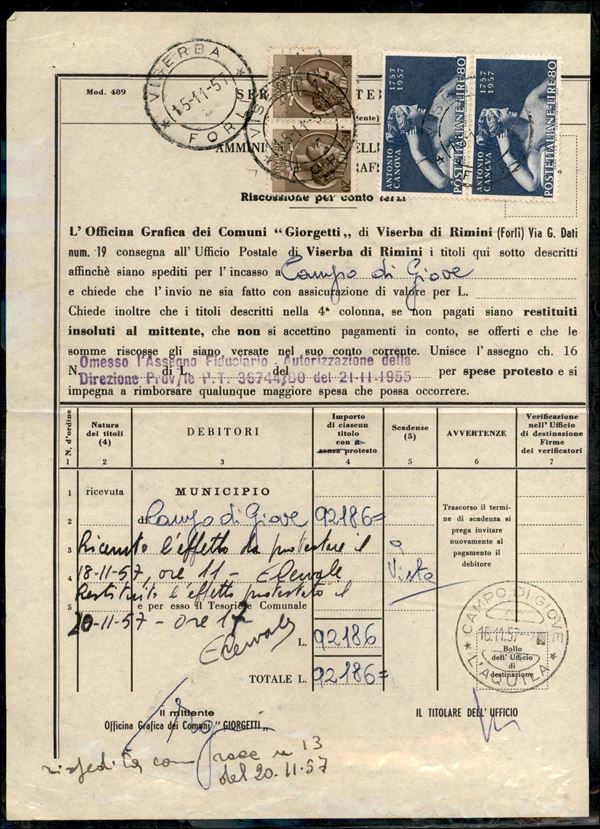 VISERBA
15-11-57
* FORLI *
Mod. 489
1757 1957
ANTONIO CANOVA
POSTE ITALIANE LIRE 80
1757 1957
ANTONIO CANOVA
POSTE ITALIANE LIRE 80
Riscossione per conto terzi
L'Officina Grafica dei Comuni “Giorgetti„ di Viserba di Rimini (Forlì) Via G. Dati
num. 19 consegna all'Ufficio Postale di Viserba di Rimini i titoli qui sotto descritti
affinchè siano spediti per l'incasso a Campo di Giove
e chiede che l'invio ne sia fatto con assicurazione di valore per L.
Chiede inoltre che i titoli descritti nella 4ª colonna, se non pagati siano restituiti
insoluti al mittente, che non si accettino pagamenti in conto, se offerti e che le
somme riscosse gli siano versate nel suo conto corrente. Unisce l'assegno ch. 16
Omesso l'Assegno Fiduciario - Autorizzazione della
N. di L. del per spese protesto e si
Direzione Prov/le P.T. 36744/DO del 21-11-1955
impegna a rimborsare qualunque maggiore spesa che possa occorrere.
N. d'ordine Natura dei titoli (4) DEBITORI Importo di ciascun titolo con o senza protesto Scadenze (5) AVVERTENZE Verificazione nell'Ufficio di destinazione Firme dei verificatori
1 2 3 4 5 6 7
1 ricevuta MUNICIPIO
2 di Campo di Giove 92186=
Trascorso il termine di scadenza si prega invitare nuovamente al pagamento il debitore
3 Ricevuto l'effetto da protestare il a Vista
4 18-11-57, ore 11 -
Restituito l'effetto protestato il
5 e per esso il Tesoriere Comunale
20-11-57 - ore 17
L. 92186
TOTALE L. 92186=
CAMPO DI GIOVE
16.11.57
* L'AQUILA *
Bollo dell'Ufficio di destinazione
Il mittente
Officina Grafica dei Comuni “GIORGETTI„
IL TITOLARE DELL'UFFICIO
rispedita con racc n 13
del 20.11.57